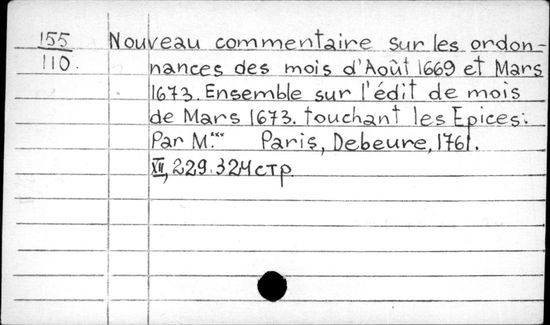 155 Nouveau commentaire sur les ordon-
110. nances des mois d'Août 1669 et Mars
1673. Ensemble sur l'édit de mois
de Mars 1673. touchant les Epices.
Par M.*** Paris, Debeure, 1761.
XII, 229. 324 стр.